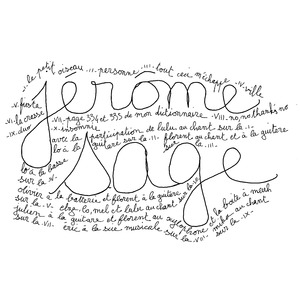 le petit oiseau .II. personne .III. tout ceci m'échappe .IV. ville
.V. fiesta
.VI. la crosse .VII. page 554 et 555 de mon dictionnaire .VIII. no, no thanks no
.IX. duo .X. insomnie
jérôme
avec la participation de lulu au chant sur la
lo à la guitare sur la florent au chant, et à la guitare
sage
lo à la basse
sur la .V.
olivier à la batterie et florent à la guitare
sur la .V. lo, mel et lulu au chant sur la
julien à la guitare et florent au
sur la .VII. éric à la scie musicale sur la .VIII.
et la boîte à meuh
mika au chant
sur la .IX.